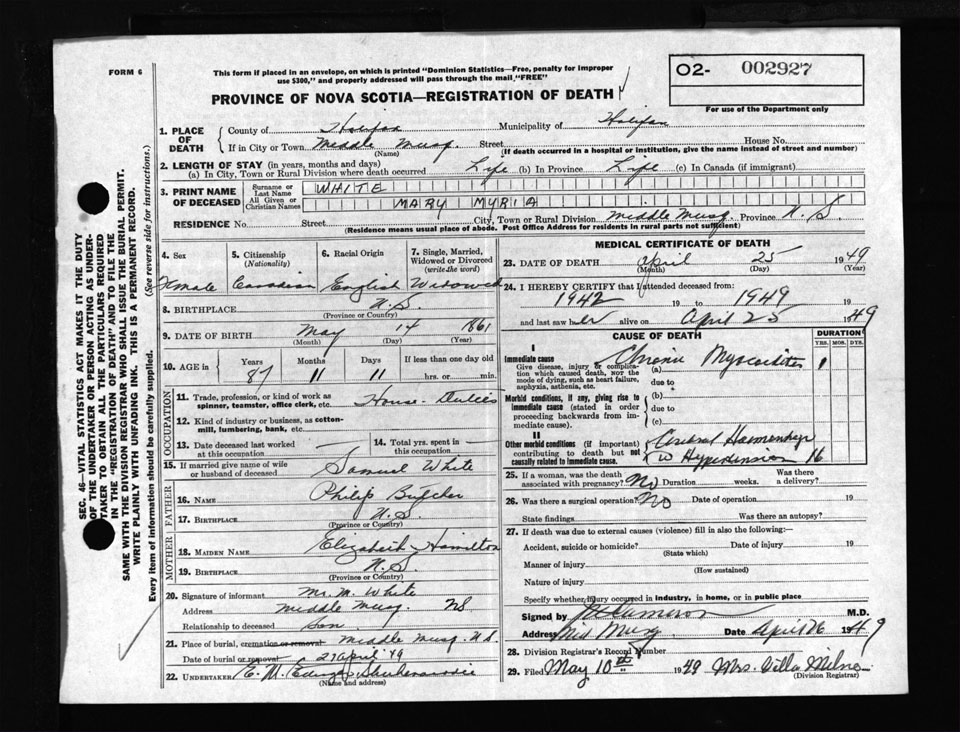 FORM 6
This form if placed in an envelope, on which is printed "Dominion Statistics—Free, penalty for improper
use $300," and properly addressed will pass through the mail, "FREE"
PROVINCE OF NOVA SCOTIA—REGISTRATION OF DEATH
O2- 002927
For use of the Department only
SEC. 46—VITAL STATISTICS ACT MAKES IT THE DUTY
OF THE UNDERTAKER OR PERSON ACTING AS UNDER-
TAKER TO OBTAIN ALL THE PARTICULARS REQUIRED
IN THE "REGISTRATION OF DEATH" AND TO FILE THE
SAME WITH THE DIVISION REGISTRAR WHO SHALL ISSUE THE BURIAL PERMIT.
WRITE PLAINLY WITH UNFADING INK. THIS IS A PERMANENT RECORD.
Every item of information should be carefully supplied. (See reverse side for instructions.)
1. PLACE OF DEATH County of Halifax Municipality of Halifax
If in City or Town Middle Musq. Street House No.
(Name) (If death occurred in a hospital or institution, give the name instead of street and number)
2. LENGTH OF STAY (in years, months and days)
(a) In City, Town or Rural Division where death occurred Life (b) In Province Life (c) In Canada (if immigrant)
3. PRINT NAME OF DECEASED Surname or Last Name WHITE
All Given or Christian Names MARY MYRIA
RESIDENCE No. Street City, Town or Rural Division Middle Musq. Province N.S.
(Residence means usual place of abode. Post Office Address for residents in rural parts not sufficient)
4. Sex 5. Citizenship (Nationality) 6. Racial Origin 7. Single, Married, Widowed or Divorced (write the word)
Female Canadian English Widowed
8. BIRTHPLACE N.S.
(Province or Country)
9. DATE OF BIRTH May 14 1861
(Month) (Day) (Year)
10. AGE in Years Months Days If less than one day old
87 11 11 hrs. or min.
OCCUPATION
11. Trade, profession, or kind of work as
spinner, teamster, office clerk, etc. House-Duties
12. Kind of industry or business, as cotton-
mill, lumbering, bank, etc.
13. Date deceased last worked at this occupation 14. Total yrs. spent in this occupation
15. If married give name of wife
or husband of deceased Samuel White
FATHER
16. NAME Philip
17. BIRTHPLACE N.S.
(Province or Country)
MOTHER
18. MAIDEN NAME Elizabeth Hamilton
19. BIRTHPLACE N.S.
(Province or Country)
20. Signature of informant Mr. M. White
Address Middle Musq. NS
Relationship to deceased Son
21. Place of burial, cremation or removal Middle Musq. N.S.
Date of burial or removal 27 April '49
22. UNDERTAKER E. M.
(Name and address)
MEDICAL CERTIFICATE OF DEATH
23. DATE OF DEATH April 25 1949
(Month) (Day) (Year)
24. I HEREBY CERTIFY that I attended deceased from:
1942 19 to 1949 19
and last saw her alive on April 25 1949
CAUSE OF DEATH DURATION
YRS. MOS. DYS.
I
Immediate cause (a) Chronic Myocarditis 1
Give disease, injury or complica-
tion which caused death, NOT the
mode of dying, such as heart failure,
asphyxia, asthenia, etc.
due to
Morbid conditions, if any, giving rise to (b)
immediate cause (stated in order due to
proceeding backwards from im-
mediate cause). (c)
II
Other morbid conditions (if important) Cerebral Haemorrhage
contributing to death but not
causally related to immediate cause. Hypertension 16
25. If a woman, was the death
associated with pregnancy? No Duration weeks. Was there a delivery?
26. Was there a surgical operation? No Date of operation 19
State findings Was there an autopsy?
27. If death was due to external causes (violence) fill in also the following:—
Accident, suicide or homicide? Date of injury 19
(State which)
Manner of injury
(How sustained)
Nature of injury
Specify whether injury occurred in industry, in home, or in public place
Signed by Cameron M.D.
Address Mid Musq Date April 26 1949
28. Division Registrar's Record Number
29. Filed May 10th 1949 Mrs. Milner
(Division Registrar)